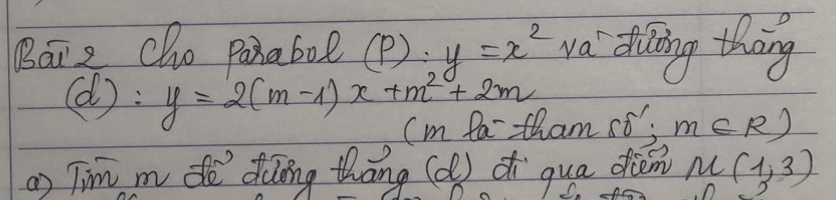 Bài 2 Cho parabol (P): y = x² và đường thẳng
(d): y = 2(m-1)x + m² + 2m
(m là tham số; m ∈ R)
a) Tìm m để đường thẳng (d) đi qua điểm M(1;3)